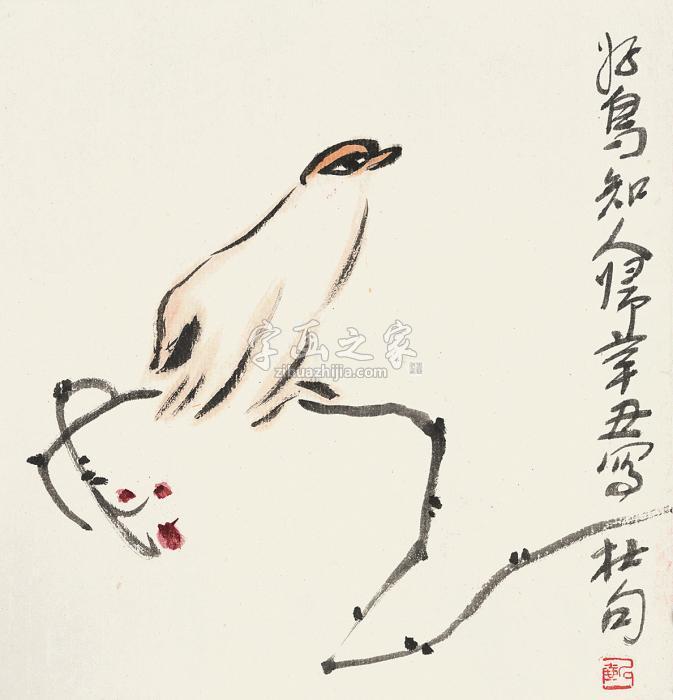 好鳥知人帰辛丑写杜句
字画之家
zihuazhijia.com